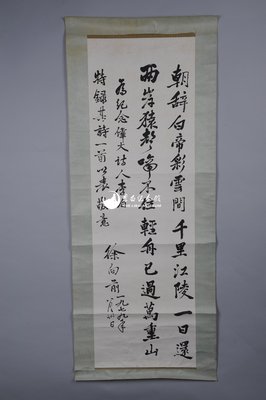 朝辞白帝彩雲間千里江陵一日還
两岸猿声啼不住輕舟已過萬重山
为纪念偉大詩人李
特録其詩一首以表敬意
徐向前一九七九年